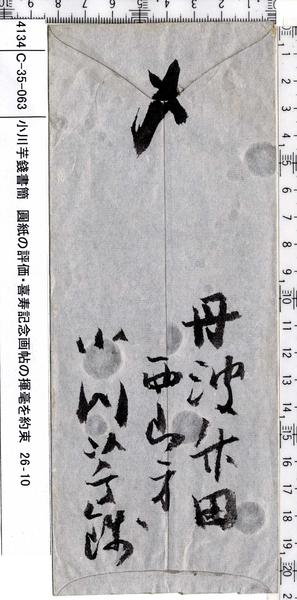 4134 C-35-063 小川芋錢書簡 圓紙の評価・喜寿記念画帖の揮毫を約束 26-10
〆
丹波竹田
西山方
小川芋錢